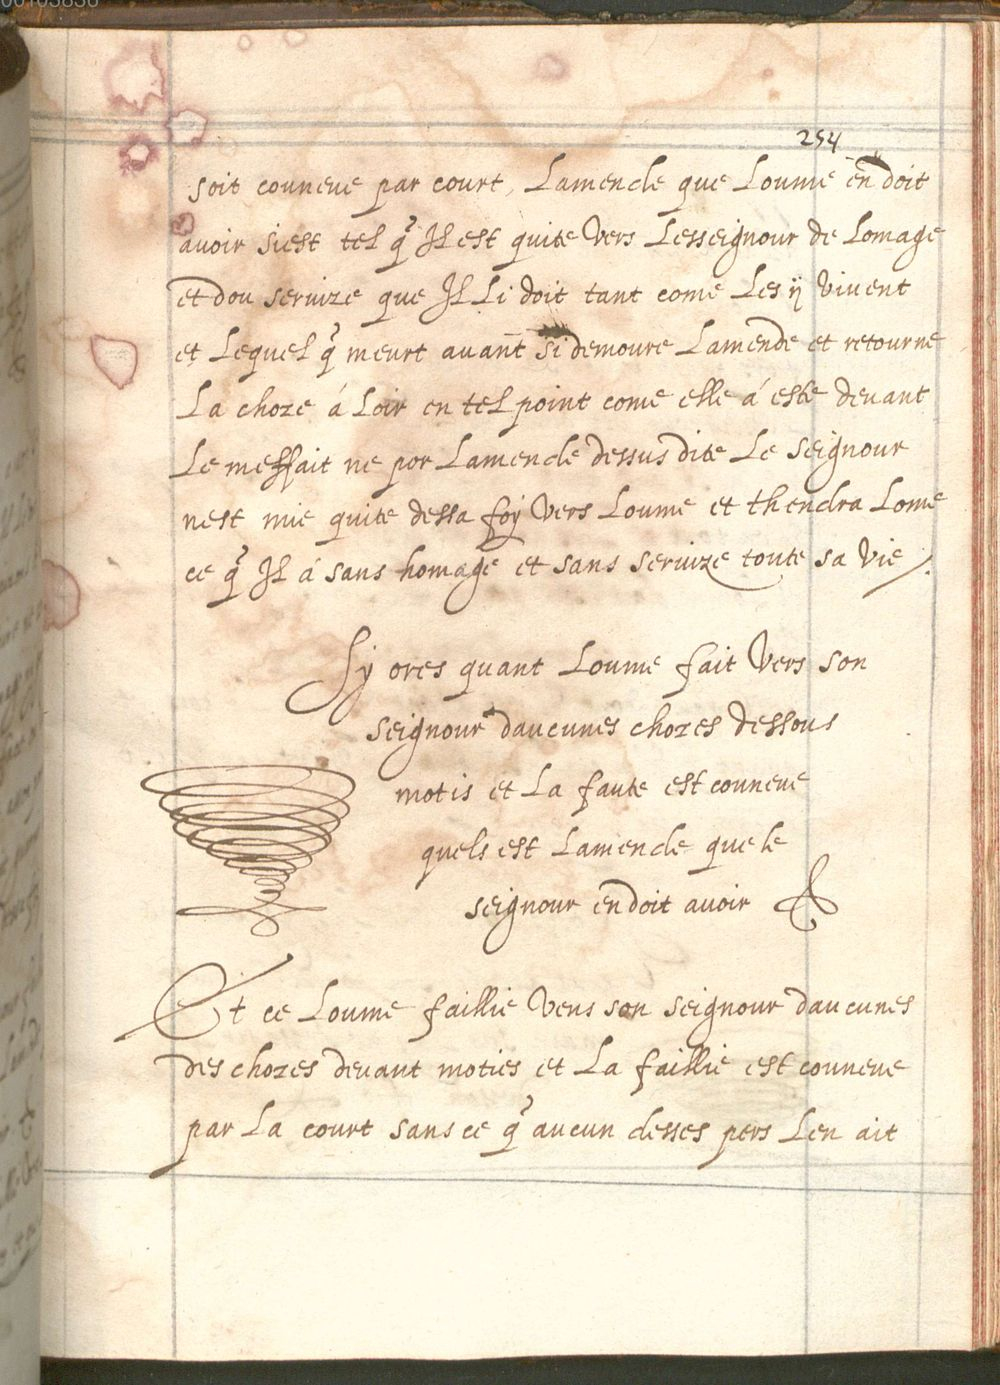 00103836
254
soit conneue par court, Lamende que Loume en doit
avoir siest tel q̃ Il est quite Vers Lesseignour de Lomage
et dou seruize que Il Li doit tant come Les ij Vivent
et Lequel q̃ meurt auant si demoure Lamende et retourne
La choze á Loir en tel point come elle á este deuant
Le meffait ne por Lamende dessus dite Le Seignour
nest mie quite dessa foÿ Vers Loume et thendra Lome
ce q̃ Il á sans homage et sans seruize toute sa Vie /.
Sy ores quant Loume fait Vers son
seignour daucunes chozes dessous
motis et La faute est conneue
quels est Lamende que le
seignour en doit avoir
Et ce Loume faillie Vens son seignour daucunes
des chozes deuant moties et La faillie est conneue
par La court sans ce q̃ aucun desses pers Len ait